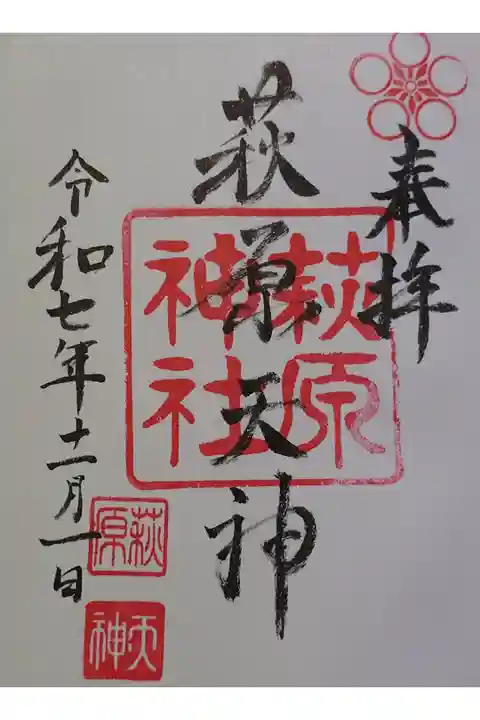 奉拝
萩原天神
萩原
神社
令和七年十一月一日
萩原
天神